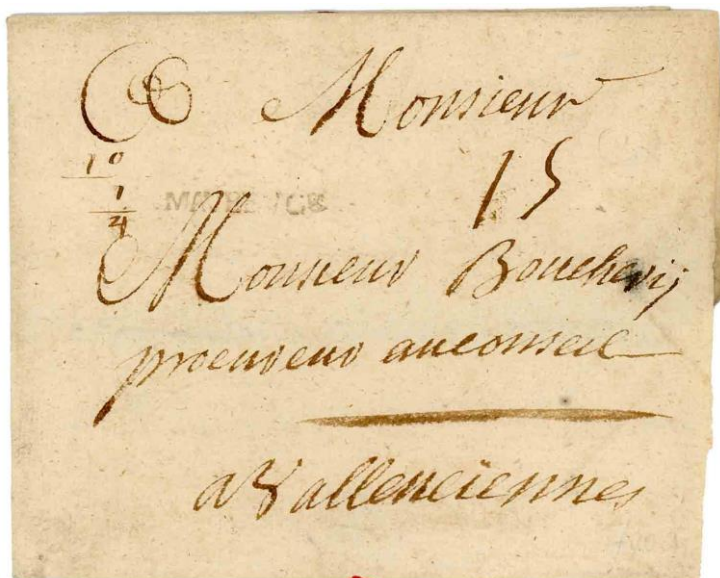 A Monsieur
15
10
1
4
MAUBEUGE
Monsieur
procureur au conseil
a Vallenciennes